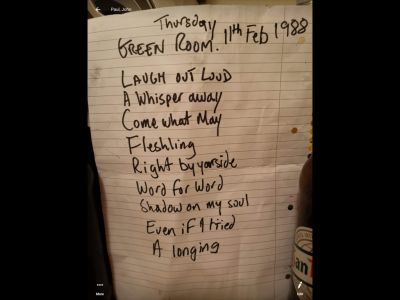 Paul, John
Thursday
GREEN ROOM. 11th Feb 1988
LAUGH OUT LOUD
A Whisper away
Come what May
Fleshling
Right by yorside
Word for Word
Shadow on my soul
Even if I tried
A longing
an
More